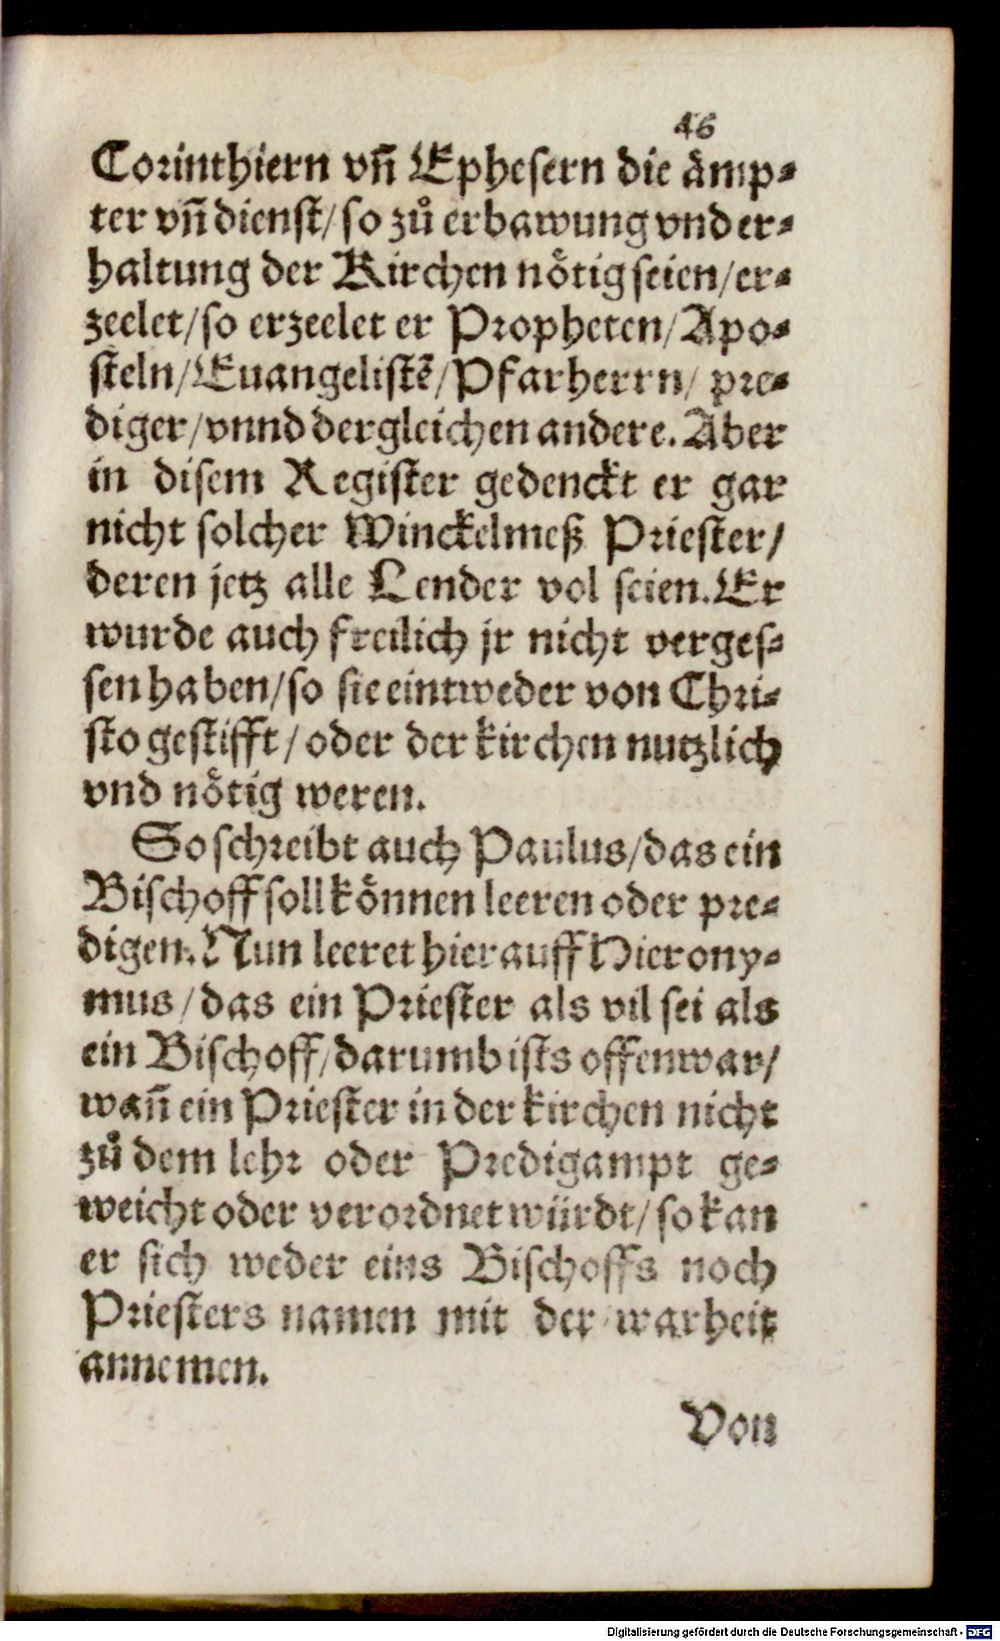 46
Corinthiern vñ Ephesern die ämp⸗
ter vñ dienst/ so zů erbawung vnd er⸗
haltung der Kirchen nötig seien/ er⸗
zeelet/ so erzeelet er Propheten/ Apo⸗
steln/ Euangelistẽ/ Pfarherrn/ pre⸗
diger/ vnnd dergleichen andere. Aber
in disem Register gedenckt er gar
nicht solcher Winckelmeß Priester/
deren jetz alle Lender vol seien. Er
wurde auch freilich jr nicht verges⸗
sen haben/ so sie eintweder von Chri⸗
sto gestifft/ oder der kirchen nutzlich
vnd nötig weren.
So schreibt auch Paulus/ das ein
Bischoff soll können leeren oder pre⸗
digen. Nun leeret hierauff Hierony⸗
mus/ das ein Priester als vil sei als
ein Bischoff/ darumb ists offenwar/
wañ ein Priester in der kirchen nicht
zů dem lehr oder Predigampt ge⸗
weicht oder verordnet würdt/ so kan
er sich weder eins Bischoffs noch
Priesters namen mit der warheit
annemen.
Von
Digitalisierung gefördert durch die Deutsche Forschungsgemeinschaft - DFG